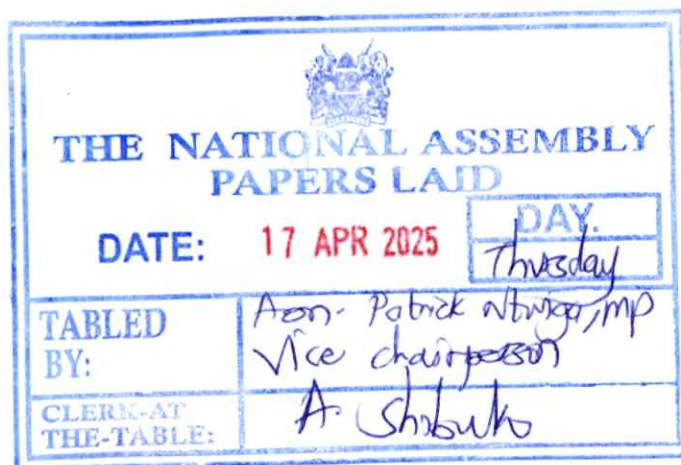 THE NATIONAL ASSEMBLY
PAPERS LAID
DATE: 17 APR 2025
DAY.
Thursday
TABLED BY:
Hon. Patrick Ntwiga, MP
Vice chairperson
CLERK-AT
THE-TABLE:
A. Shibuko